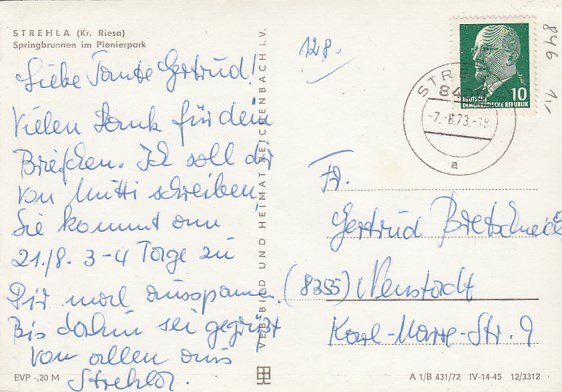 STREHLA (Kr. Riesa)
Springbrunnen im Pionierpark
Liebe Tante Gertrud!
Vielen Dank für dein
Briefchen. Ich soll dir
von Mutti schreiben,
Sie kommt am
21./8. 3-4 Tage zu
Dir mal ausspannen.
Bis dahin sei gegrüßt
von allen aus
Strehla.
EVP -,20 M
VEB BILD UND HEIMAT REICHENBACH I.V.
128.
846
STREHLA
84
-7.-6.73.-18
a
10
DEUTSCHE
DEMOKRATISCHE REPUBLIK
Fr.
Gertrud Bretschneid
(8355) Neustadt
Karl-Marx-Str. 9
A 1/B 431/72 IV-14-45 12/3312